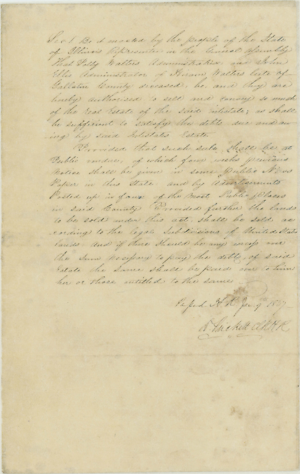 Sec 1 Be it enacted by the people of the State
of Illinois represented in the General Assembly
That Sally Walters Administratrix and John
Ellis Administrator of Walters late of
Gallatin County deceased be and they are
hereby authorised to sell and convey so much
of the real estate of the said intestate, as shall
be sufficient to satisfy the debts due and ow-
ing by said intestates Estate.
Provided that such sale shall be at
Public vendue, of which four weeks previous
notice shall be given in some Public News
Paper in this State and by advertisements
Posted up in four of the most Public places
in said County. Provided further the lands
to be sold under this act, shall be sold ac-
cording to the legal Subdivisions of United States
lands. and if there should be any surplus over
the sum necessary to pay the debts of said
Estate the same shall be paid over to him
her or those entitled to the same.
H. R. Jany